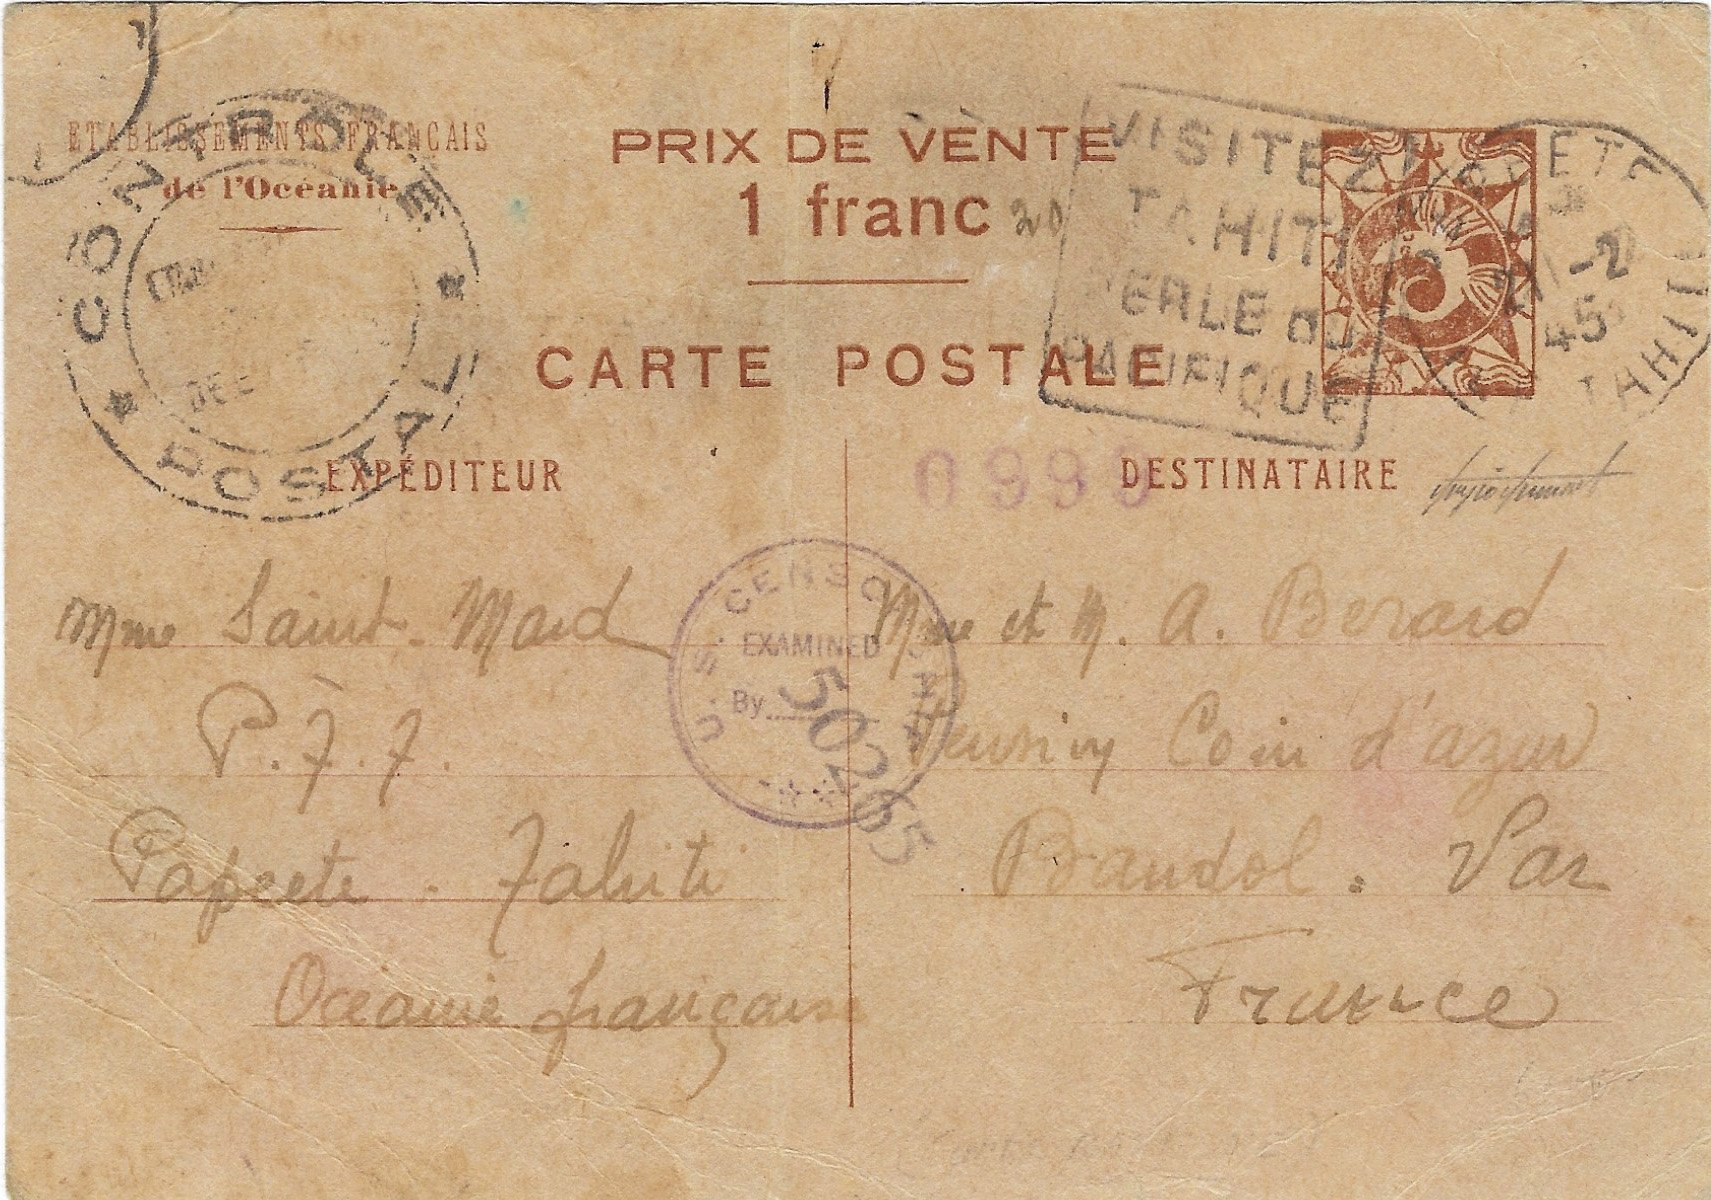 ETABLISSEMENTS FRANÇAIS
de l'Océanie
CONTRÔLE
POSTAL
PRIX DE VENTE
1 franc
20
CARTE POSTALE
VISITEZ
TAHITI
PERLE DU
PACIFIQUE
PAPEETE
-2
45
TAHITI
EXPÉDITEUR
0999
DESTINATAIRE
U.S. CENSORSHIP
EXAMINED
By 50265
Mme Saint-Mard
P.F.F.
Papeete. Tahiti
Océanie française
Mme et M. A. Berard
Coin d'azur
Bandol. Var
France